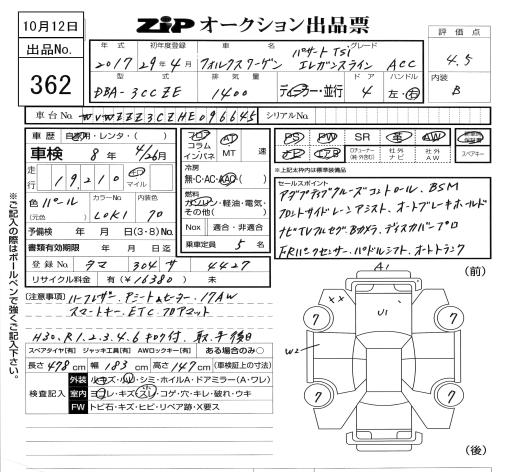 10月12日
ZiP オークション出品票
出品No.
362
評価点
4.5
内装
B
年式 初年度登録 車名 グレード
2017 29年4月 フォルクスワーゲン パサート TSi エレガンスライン ACC
型式 排気量 ドア ハンドル
DBA-3CCZE 1400 ディーラー・並行 4 左・右
車台No. WVWZZZ3CZHE096645 シリアルNo.
車歴 自家用・レンタ・( )
車検 8年 4/26月
走行 19,210 キロ マイル
色 パール (元色)
カラーNo. LOK1
内装色 70
予備検 年 月 日(3・8)No.
書類有効期限 年 月 日迄
登録No. タマ 304 サ 4427
リサイクル料金 有(¥16380) 未
フロア コラム インパネ
AT MT 速
冷房 無・C・AC・AAC
燃料 ガソリン・軽油・電気・その他( )
Nox 適合・非適合
乗車定員 5 名
PS PW SR 革 AW
エアB
ロドチューナー(純外含む) 社外ナビ 社外AW スペアキー
*上記太枠内は標準装備品
セールスポイント
アダプティブクルーズコントロール. BSM
フロントサイドレーンアシスト. オートブレーキホールド
ナビTVフルセグ Bカメラ. ディスカバープロ
F.Rパークセンサー. パドルシフト. オートトランク
(注意事項)
ハーフレザー. Pシートヒーター. 17AW
スマートキー. ETC. フロアマット
H30. R1. 2. 3. 4. 6 キロク付 取. 予 後日
スペアタイヤ[有] ジャッキ工具[有] AWロックキー[有] ある場合のみ〇
長さ 478 cm 幅 183 cm 高さ 147 cm (車検証上の寸法)
検査記入
外装 小キズ・小凹・シミ・ホイルA・ドアミラー(A・ワレ)
室内 ヨゴレ・キズ・スレ・コゲ・穴・キレ・破れ・ウキ
FW トビ石・キズ・ヒビ・リペア跡・X要ス
※ご記入の際はボールペンで強くご記入下さい。
A1
(前)
××
U1
7
7
W2
7
7
(後)